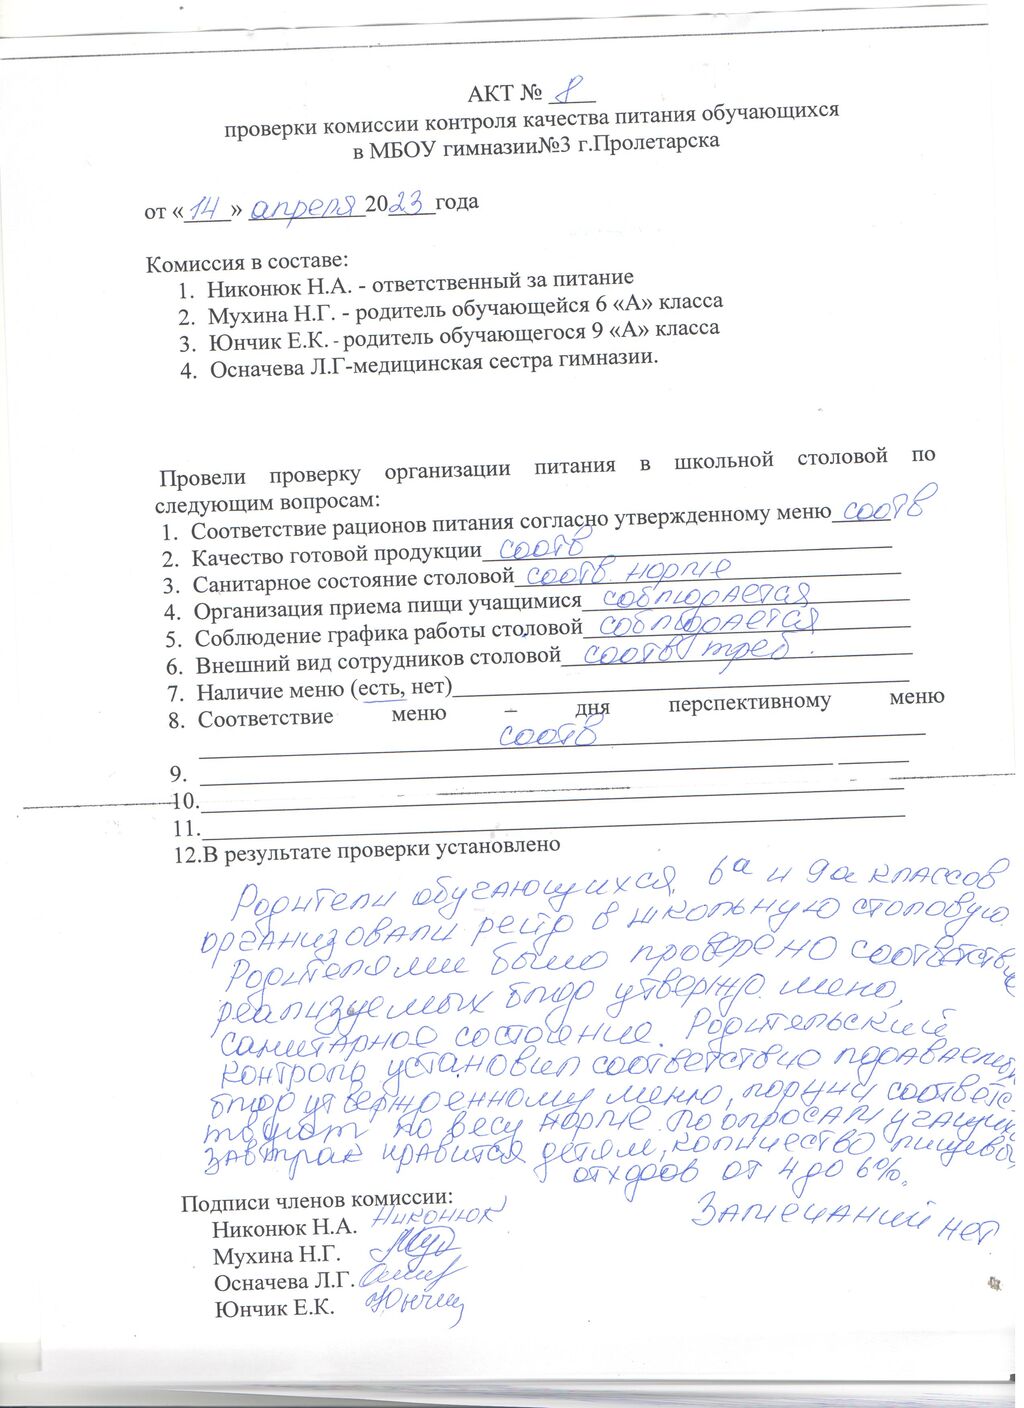 АКТ № 8
проверки комиссии контроля качества питания обучающихся
в МБОУ гимназии№3 г.Пролетарска
от «14» апреля 2023 года
Комиссия в составе:
1. Никонюк Н.А. - ответственный за питание
2. Мухина Н.Г. - родитель обучающейся 6 «А» класса
3. Юнчик Е.К. - родитель обучающегося 9 «А» класса
4. Осначева Л.Г-медицинская сестра гимназии.
Провели проверку организации питания в школьной столовой по
следующим вопросам:
1. Соответствие рационов питания согласно утвержденному меню соотв
2. Качество готовой продукции соотв
3. Санитарное состояние столовой соотв. норме
4. Организация приема пищи учащимися соблюдается
5. Соблюдение графика работы столовой соблюдается
6. Внешний вид сотрудников столовой соотв треб.
7. Наличие меню (есть, нет)
8. Соответствие меню – дня перспективному меню
соотв
9.
10.
11.
12.В результате проверки установлено
Родители обучающихся 6а и 9а классов
организовали рейд в школьную столовую.
Родителями было проверено соответствие
реализуемых блюд утвержд. меню,
санитарное состояние. Родительский
контроль установил соответствие
блюд утвержденному меню, порции соответс
твуют по весу норме. По опросам
завтрак нравится детям, количество
отходов от 4 до 6%.
Замечаний нет
Подписи членов комиссии:
Никонюк Н.А. Никонюк
Мухина Н.Г.
Осначева Л.Г.
Юнчик Е.К. Юнчик